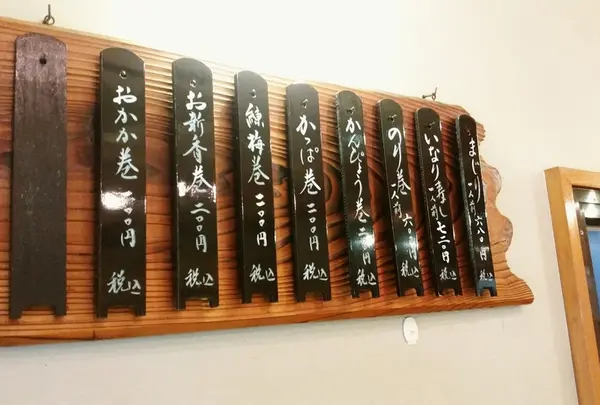 まじり 一人前 六八〇円 税込
いなり寿し 一人前 七二〇円 税込
のり巻 一人前 六〇〇円 税込
かんぴょう巻 二〇〇円 税込
かっぱ巻 二〇〇円 税込
練梅巻 二〇〇円 税込
お新香巻 二〇〇円 税込
おかか巻 二〇〇円 税込